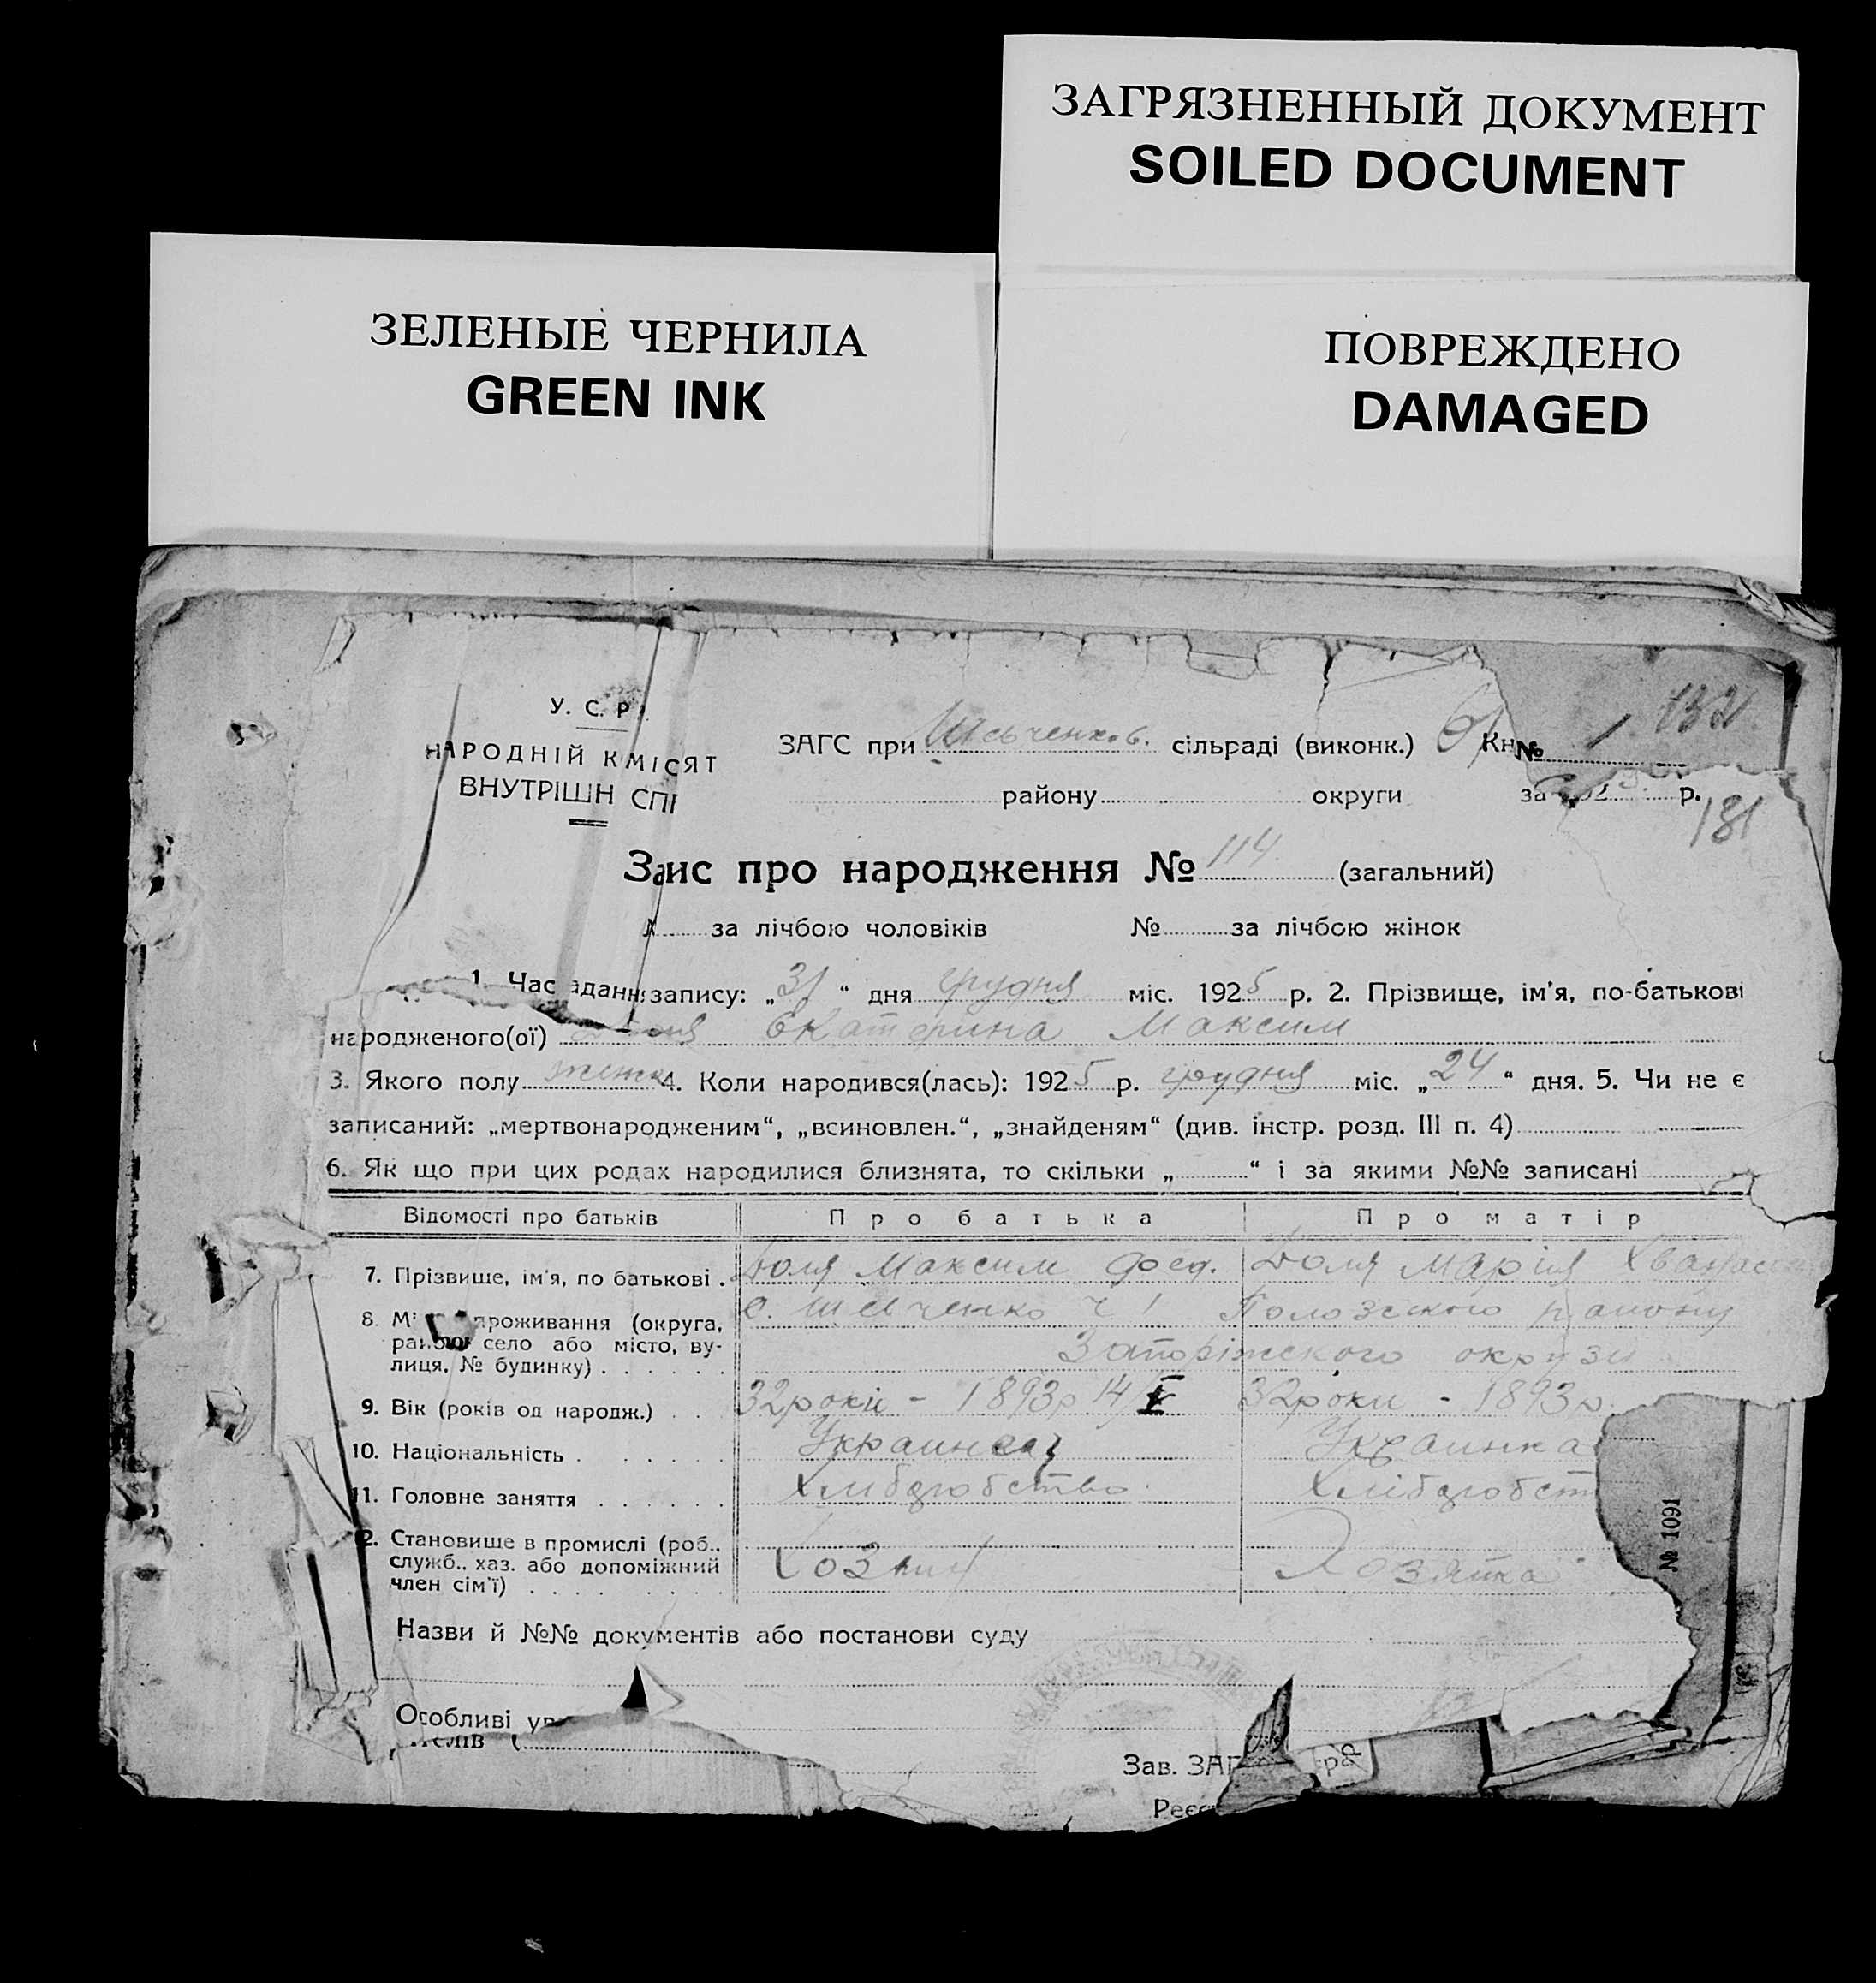 ЗАГРЯЗНЕННЫЙ ДОКУМЕНТ
SOILED DOCUMENT
ЗЕЛЕНЫЕ ЧЕРНИЛА
GREEN INK
ПОВРЕЖДЕНО
DAMAGED
132
У. С. Р.
НАРОДНІЙ КМІСЯТ
ВНУТРІШН СПІ
ЗАГС при Шевченков. сільраді (виконк.) Кн № 1
району округи за 192 р.
181
Запис про народження № 114 (загальний)
за лічбою чоловіків № за лічбою жінок
1. Час адання запису: „31“ дня грудня міс. 1925 р. 2. Прізвище, ім'я, по-батькові
народженого(ої) Екатерина Максим
3. Якого полу жіноч 4. Коли народився(лась): 1925 р. грудня міс. „24“ дня. 5. Чи не є
записаний: „мертвонародженим“, „всиновлен.“, „знайденям“ (див. інстр. розд. III п. 4)
6. Як що при цих родах народилися близнята, то скільки „ “ і за якими №№ записані
Відомості про батьків Про батька Про матір
7. Прізвище, ім'я, по батькові . Доля Максим Фед. Доля Марія
8. М проживання (округа, с. Шевченко ч 1 Пологського району
район село або місто, ву-
лиця, № будинку) . . . . . . Запоріжского округи
9. Вік (років од народж.) . . 32 роки - 1893р 14/ 32 роки - 1893р.
10. Національність . . . . . Украинец Украинка
11. Головне заняття . . . . . . Хлибдробство Хлібдробст
12. Становище в промислі (роб.,
служб., хаз. або допоміжний Хозяин Хозяйка
член сім'ї) . . . . . . . .
№ 1091
Назви й №№ документів або постанови суду
Особливі ув
Зав. ЗАГ
Реєс